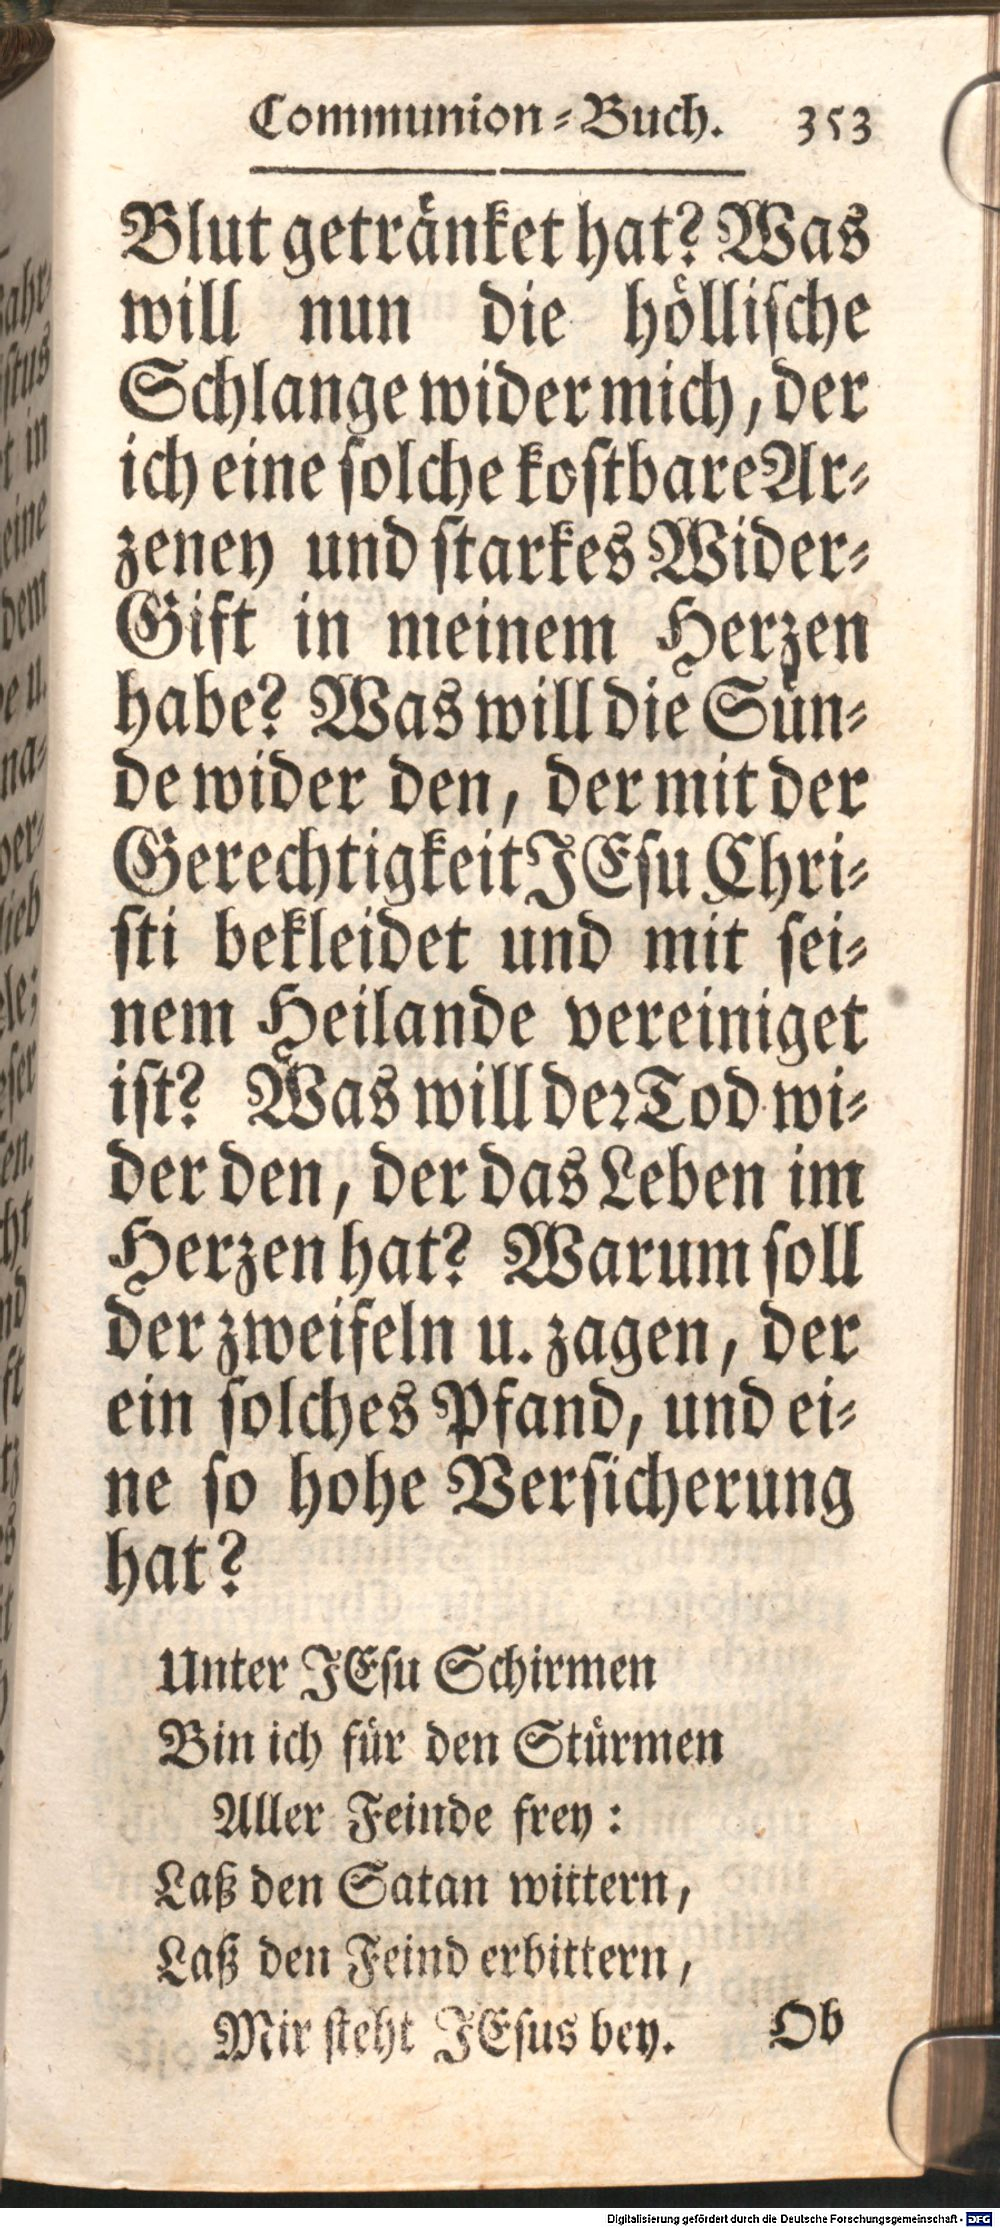 Communion-Buch. 353
Blut getränket hat? Was
will nun die höllische
Schlange wider mich, der
ich eine solche kostbare Ar-
zeney und starkes Wider-
Gift in meinem Herzen
habe? Was will die Sün-
de wider den, der mit der
Gerechtigkeit JEsu Chri-
sti bekleidet und mit sei-
nem Heilande vereiniget
ist? Was will der Tod wi-
der den, der das Leben im
Herzen hat? Warum soll
der zweifeln u. zagen, der
ein solches Pfand, und ei-
ne so hohe Versicherung
hat?
Unter JEsu Schirmen
Bin ich für den Stürmen
Aller Feinde frey:
Laß den Satan wittern,
Laß den Feind erbittern,
Mir steht JEsus bey. Ob
Digitalisierung gefördert durch die Deutsche Forschungsgemeinschaft - DFG